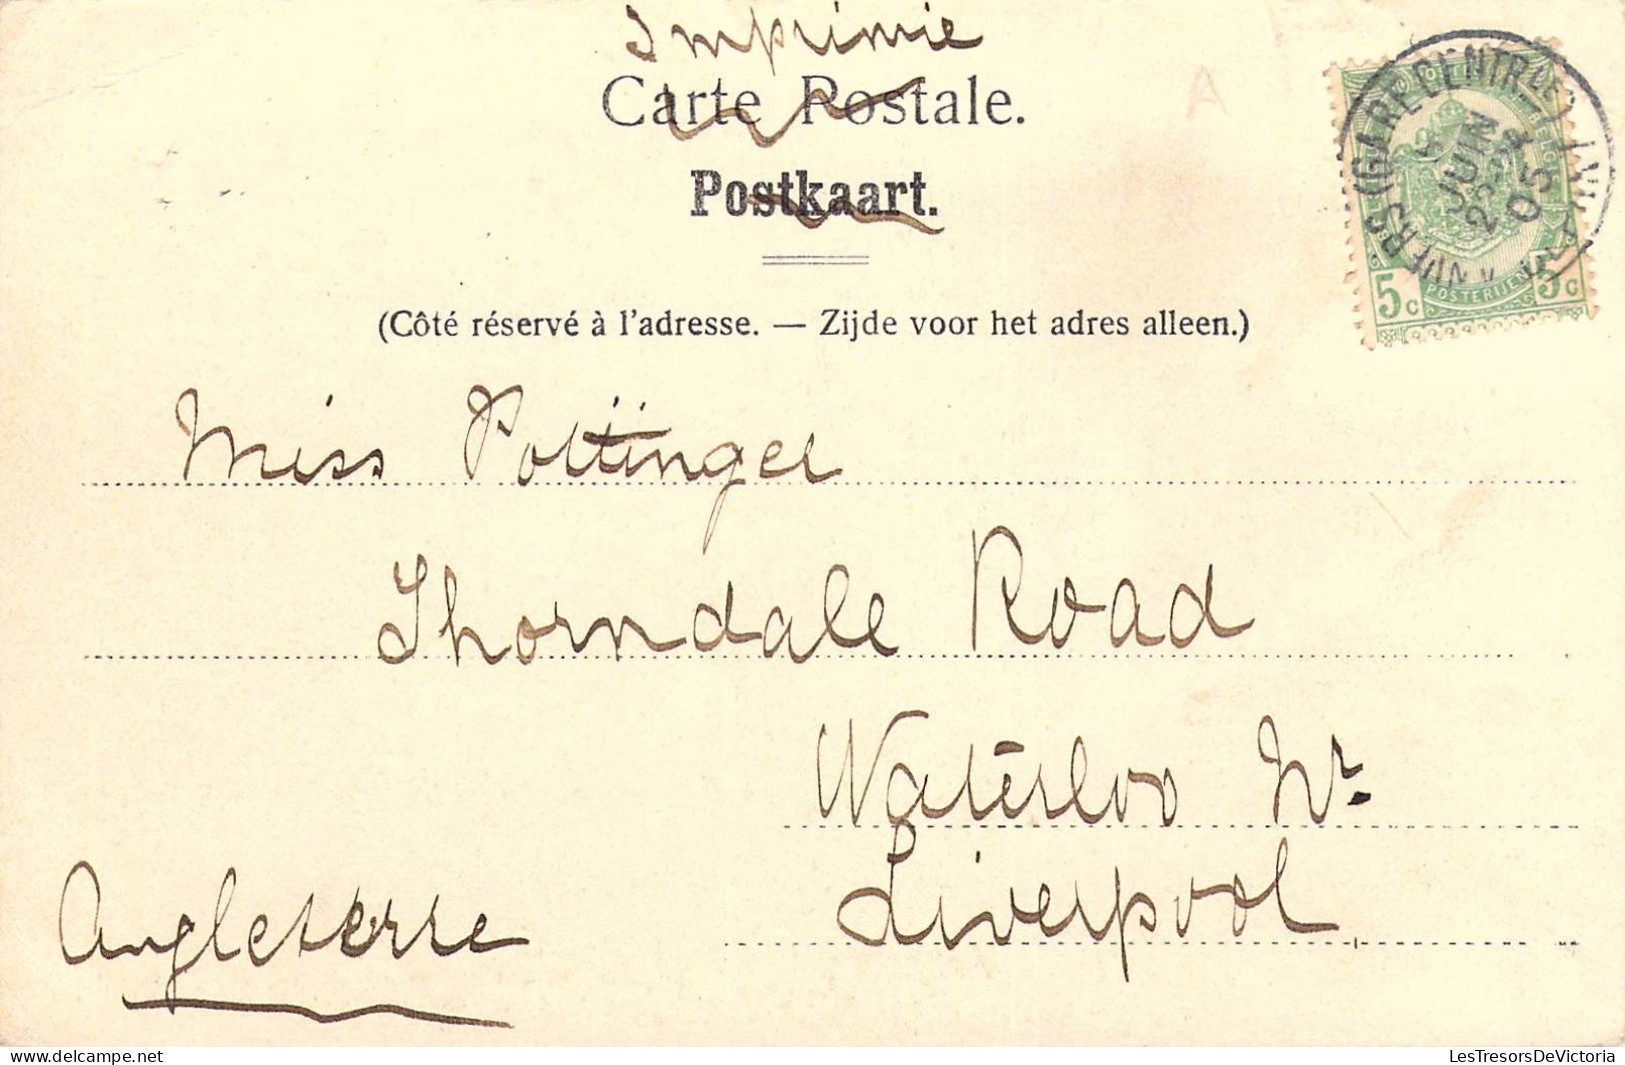 Imprimie
Carte Postale.
Postkaart.
(Côté réservé à l'adresse. — Zijde voor het adres alleen.)
ANVERS (GARE CENTRALE)
JUIN
05
BELGI
POSTERIJEN
5c 5c
Miss Pottinger
Thorndale Road
Waterloo Nr.
Liverpool
Angleterre
LesTresorsDeVictoria
www.delcampe.net